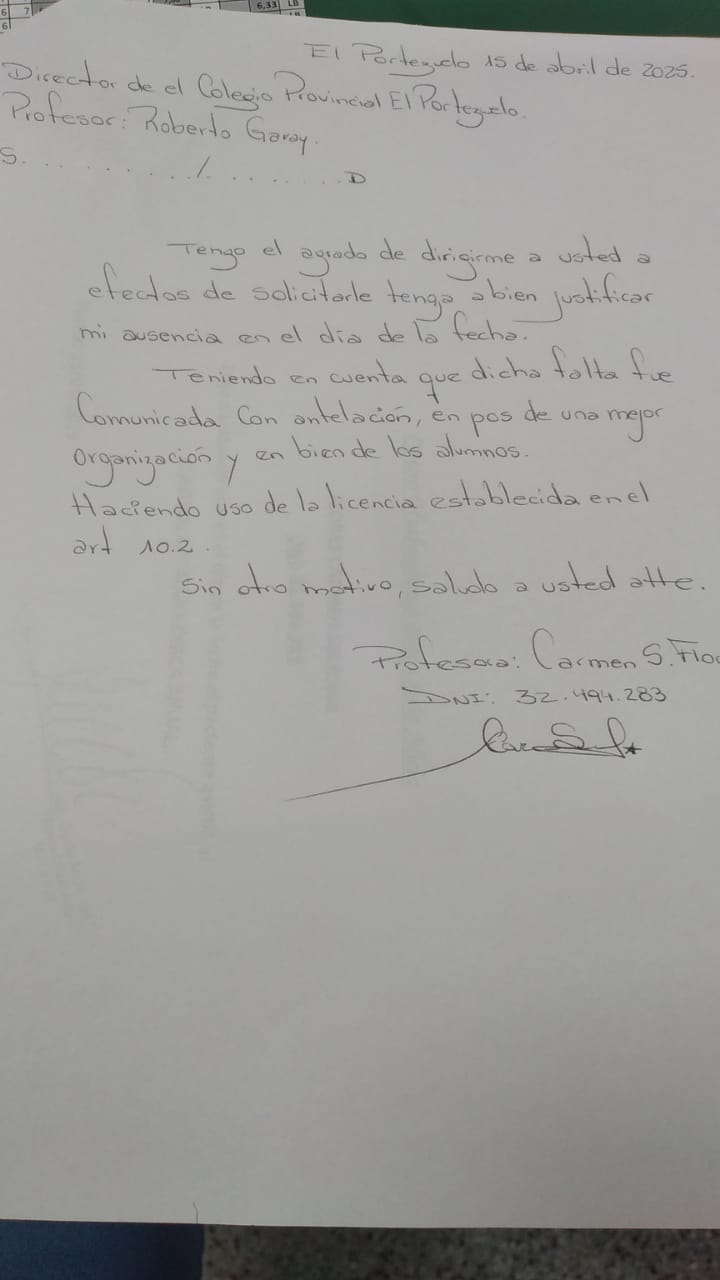 6,33 LB
6 7
6
El Portezuelo 15 de abril de 2025.
Director de el Colegio Provincial El Portezuelo.
Profesor: Roberto Garay.
S. . . . . . . . . . ./. . . . . . . D
Tengo el agrado de dirigirme a usted a
efectos de solicitarle tenga a bien justificar
mi ausencia en el día de la fecha.
Teniendo en cuenta que dicha falta fue
Comunicada Con antelación, en pos de una mejor
Organización y en bien de los alumnos.
Haciendo uso de la licencia establecida en el
art 10.2.
Sin otro motivo, saludo a usted atte.
Profesora: Carmen S. Flo
DNI: 32.494.283